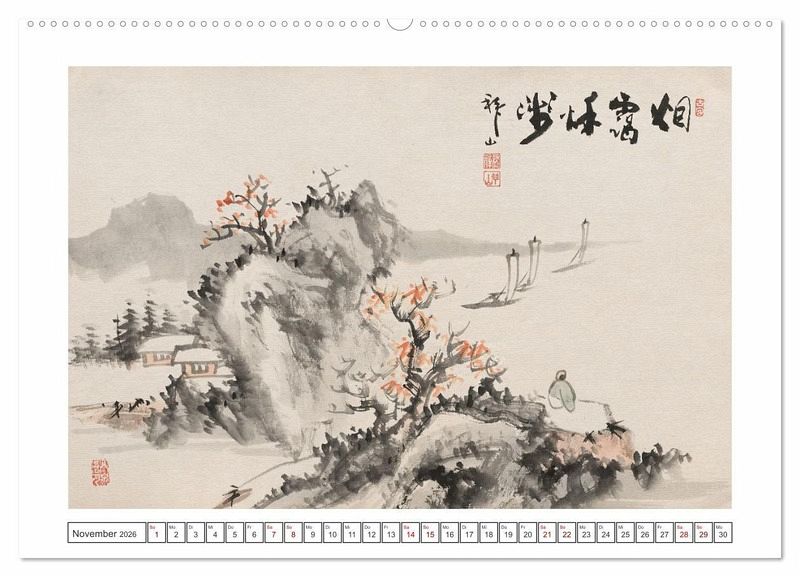 烟 秋
山
So Mo Di Mi Do Fr Sa So Mo Di Mi Do Fr Sa So Mo Di Mi Do Fr Sa So Mo Di Mi Do Fr Sa So Mo
November 2026 1 2 3 4 5 6 7 8 9 10 11 12 13 14 15 16 17 18 19 20 21 22 23 24 25 26 27 28 29 30